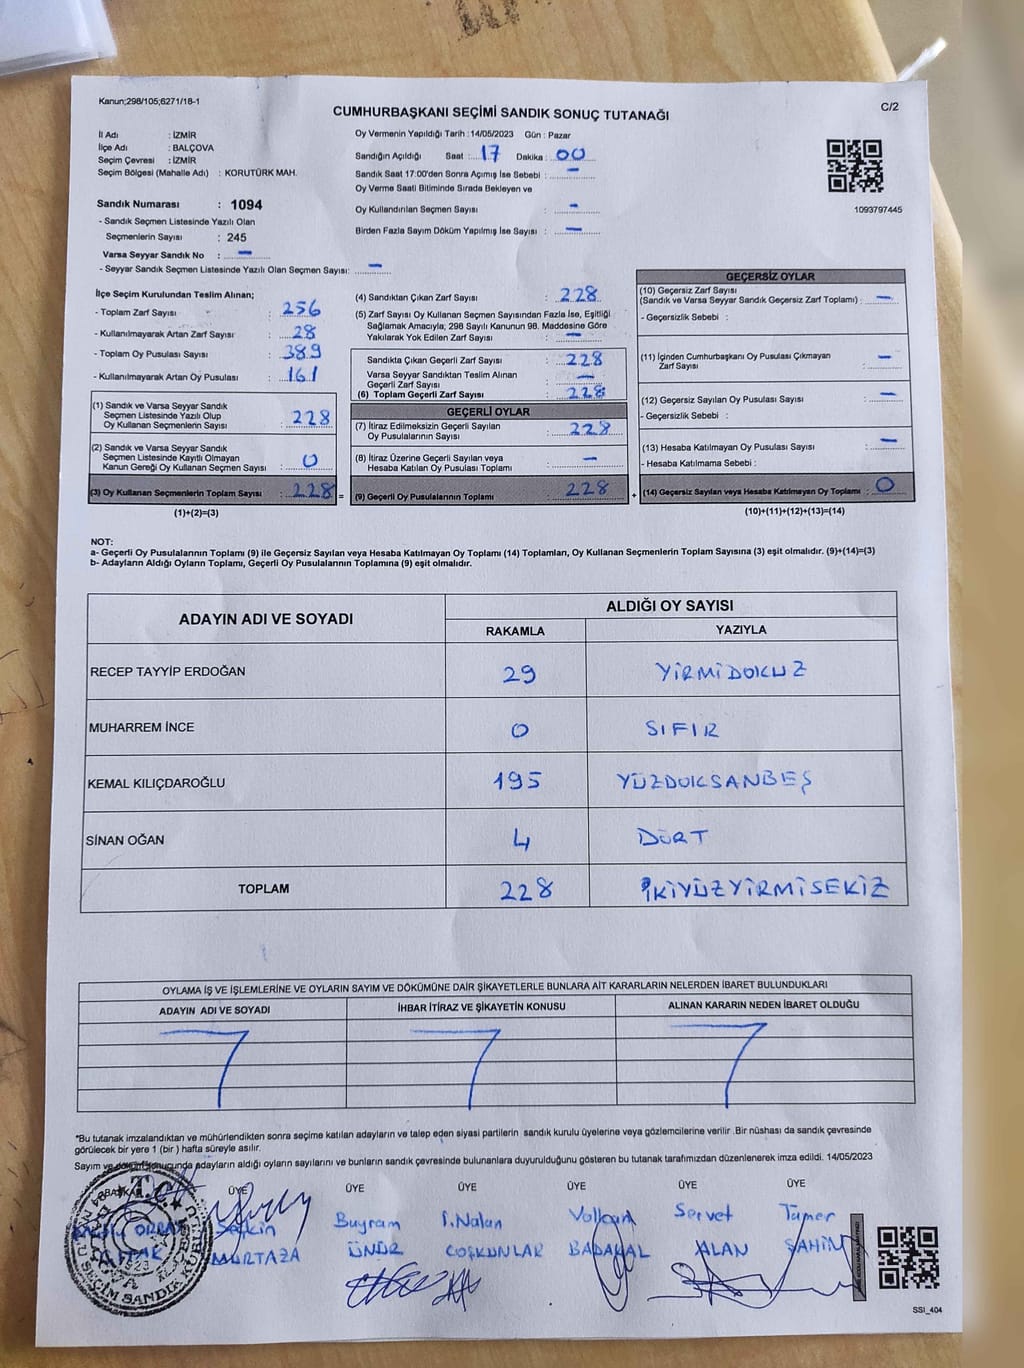 Kanun;298/105;6271/18-1
C/2
CUMHURBAŞKANI SEÇİMİ SANDIK SONUÇ TUTANAĞI
İl Adı : İZMİR
İlçe Adı : BALÇOVA
Seçim Çevresi : İZMİR
Seçim Bölgesi (Mahalle Adı) : KORUTÜRK MAH.
Sandık Numarası : 1094
- Sandık Seçmen Listesinde Yazılı Olan
Seçmenlerin Sayısı : 245
Varsa Seyyar Sandık No : -
- Seyyar Sandık Seçmen Listesinde Yazılı Olan Seçmen Sayısı: -
Oy Vermenin Yapıldığı Tarih :14/05/2023 Gün : Pazar
Sandığın Açıldığı Saat : 17 Dakika : 00
Sandık Saat 17:00'den Sonra Açımış İse Sebebi : -
Oy Verme Saati Bitiminde Sırada Bekleyen ve
Oy Kullandırılan Seçmen Sayısı : -
Birden Fazla Sayım Döküm Yapılmış İse Sayısı : -
1093797445
İlçe Seçim Kurulundan Teslim Alınan;
- Toplam Zarf Sayısı : 256
- Kullanılmayarak Artan Zarf Sayısı : 28
- Toplam Oy Pusulası Sayısı : 389
- Kullanılmayarak Artan Oy Pusulası : 161
(1) Sandık ve Varsa Seyyar Sandık
Seçmen Listesinde Yazılı Olup
Oy Kullanan Seçmenlerin Sayısı : 228
(2) Sandık ve Varsa Seyyar Sandık
Seçmen Listesinde Kayıtlı Olmayan
Kanun Gereği Oy Kullanan Seçmen Sayısı : 0
(3) Oy Kullanan Seçmenlerin Toplam Sayısı : 228 =
(1)+(2)=(3)
(4) Sandıktan Çıkan Zarf Sayısı : 228
(5) Zarf Sayısı Oy Kullanan Seçmen Sayısından Fazla İse, Eşitliği
Sağlamak Amacıyla; 298 Sayılı Kanunun 98. Maddesine Göre
Yakılarak Yok Edilen Zarf Sayısı : -
Sandıkta Çıkan Geçerli Zarf Sayısı : 228
Varsa Seyyar Sandıktan Teslim Alınan
Geçerli Zarf Sayısı : -
(6) Toplam Geçerli Zarf Sayısı : 228
GEÇERLİ OYLAR
(7) İtiraz Edilmeksizin Geçerli Sayılan
Oy Pusulalarının Sayısı : 228
(8) İtiraz Üzerine Geçerli Sayılan veya
Hesaba Katılan Oy Pusulası Toplamı : -
(9) Geçerli Oy Pusulalarının Toplamı : 228 +
GEÇERSİZ OYLAR
(10) Geçersiz Zarf Sayısı
(Sandık ve Varsa Seyyar Sandık Geçersiz Zarf Toplamı) : -
- Geçersizlik Sebebi :
(11) İçinden Cumhurbaşkanı Oy Pusulası Çıkmayan
Zarf Sayısı : -
(12) Geçersiz Sayılan Oy Pusulası Sayısı : -
- Geçersizlik Sebebi :
(13) Hesaba Katılmayan Oy Pusulası Sayısı : -
- Hesaba Katılmama Sebebi :
(14) Geçersiz Sayılan veya Hesaba Katılmayan Oy Toplamı : 0
(10)+(11)+(12)+(13)=(14)
NOT:
a- Geçerli Oy Pusulalarının Toplamı (9) ile Geçersiz Sayılan veya Hesaba Katılmayan Oy Toplamı (14) Toplamları, Oy Kullanan Seçmenlerin Toplam Sayısına (3) eşit olmalıdır. (9)+(14)=(3)
b- Adayların Aldığı Oyların Toplamı, Geçerli Oy Pusulalarının Toplamına (9) eşit olmalıdır.
ADAYIN ADI VE SOYADI
ALDIĞI OY SAYISI
RAKAMLA YAZIYLA
RECEP TAYYİP ERDOĞAN 29 YİRMİDOKUZ
MUHARREM İNCE 0 SIFIR
KEMAL KILIÇDAROĞLU 195 YÜZDOKSANBEŞ
SİNAN OĞAN 4 DÖRT
TOPLAM 228 İKİYÜZYİRMİSEKİZ
OYLAMA İŞ VE İŞLEMLERİNE VE OYLARIN SAYIM VE DÖKÜMÜNE DAİR ŞİKAYETLERLE BUNLARA AİT KARARLARIN NELERDEN İBARET BULUNDUKLARI
ADAYIN ADI VE SOYADI İHBAR İTİRAZ VE ŞİKAYETİN KONUSU ALINAN KARARIN NEDEN İBARET OLDUĞU
*Bu tutanak imzalandıktan ve mühürlendikten sonra seçime katılan adayların ve talep eden siyasi partilerin sandık kurulu üyelerine veya gözlemcilerine verilir .Bir nüshası da sandık çevresinde
görülecek bir yere 1 (bir ) hafta süreyle asılır.
Sayım ve döküm sonucunda adayların aldığı oyların sayılarını ve bunların sandık çevresinde bulunanlara duyurulduğunu gösteren bu tutanak tarafımızdan düzenlenerek imza edildi. 14/05/2023
BAŞKAN ÜYE ÜYE ÜYE ÜYE ÜYE ÜYE
Seçkin Bayram Nalan Volkan Servet Tamer
MURTAZA ÜNÜR COŞKUNLAR BADAKAL ALAN ŞAHİN
T.C.
SSI_404